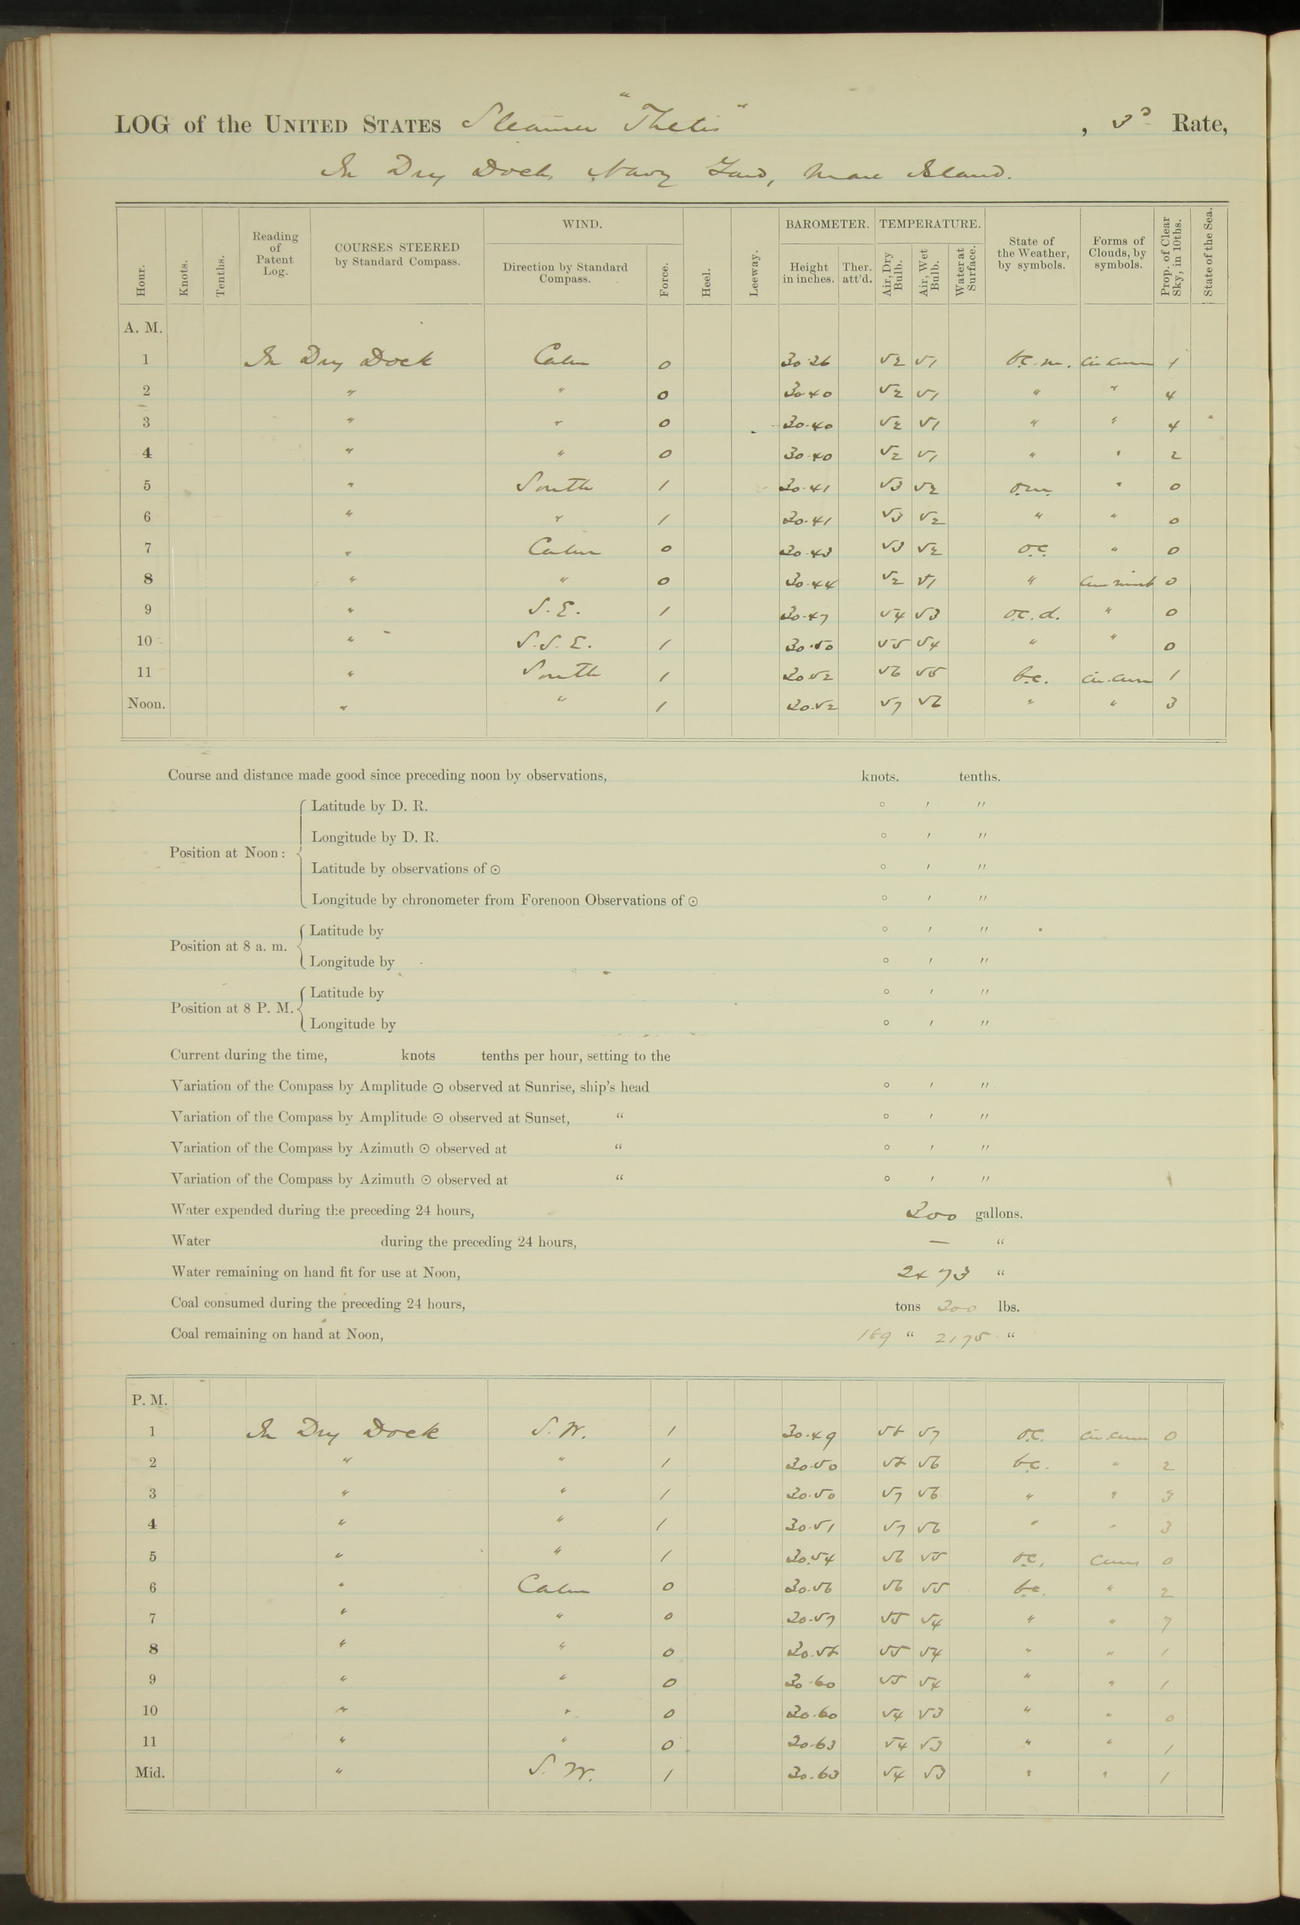 LOG of the UNITED STATES Steamer "Thetis", 3d Rate,
In Dry Dock, Navy Yard, Mare Island.
Hour. Knots. Tenths. Reading of Patent Log. COURSES STEERED by Standard Compass. WIND. Direction by Standard Compass. Force. Heel. Leeway. BAROMETER. Height in inches. Ther. att'd. TEMPERATURE. Air, Dry Bulb. Air, Wet Bulb. Water at Surface. State of the Weather, by symbols. Forms of Clouds, by symbols. Prop. of Clear Sky, in 10ths. State of the Sea.
A. M.
1 In Dry Dock Calm 0 30.26 52 51 b.c.m. Cir-cum
2 " " 0 30.40 52 51 " " 4
3 " " 0 30.40 52 51 " " 4
4 " " 0 30.40 52 51 " " 2
5 " South 1 30.41 53 52 o.m. " 0
6 " " 1 30.41 53 52 " " 0
7 " Calm 0 30.43 53 52 o.c. " 0
8 " " 0 30.44 52 51 " Cum-nimb 0
9 " S.E. 1 30.47 54 53 o.c.d. " 0
10 " S.S.E. 1 30.50 55 54 " " 0
11 " South 1 30.52 56 55 b.c. Cir-cum 1
Noon. " " 1 30.52 57 56 " " 3
Course and distance made good since preceding noon by observations, knots. tenths.
Position at Noon: Latitude by D. R. ° ′ ″
Longitude by D. R. ° ′ ″
Latitude by observations of ☉ ° ′ ″
Longitude by chronometer from Forenoon Observations of ☉ ° ′ ″
Position at 8 a. m. Latitude by ° ′ ″
Longitude by ° ′ ″
Position at 8 P. M. Latitude by ° ′ ″
Longitude by ° ′ ″
Current during the time, knots tenths per hour, setting to the
Variation of the Compass by Amplitude ☉ observed at Sunrise, ship's head ° ′ ″
Variation of the Compass by Amplitude ☉ observed at Sunset, " ° ′ ″
Variation of the Compass by Azimuth ☉ observed at " ° ′ ″
Variation of the Compass by Azimuth ☉ observed at " ° ′ ″
Water expended during the preceding 24 hours, 200 gallons.
Water during the preceding 24 hours, — "
Water remaining on hand fit for use at Noon, 2473 "
Coal consumed during the preceding 24 hours, tons 200 lbs.
Coal remaining on hand at Noon, 189 " 2175 "
P. M.
1 In Dry Dock S.W. 1 30.49 58 57 o.c. Cir-cum 0
2 " " 1 30.50 58 56 b.c. " 2
3 " " 1 30.50 57 56 " " 3
4 " " 1 30.51 57 56 " " 3
5 " " 1 30.54 56 55 o.c. Cum 0
6 " Calm 0 30.56 56 55 b.c. " 2
7 " " 0 30.57 55 54 " " 7
8 " " 0 30.58 55 54 " " 1
9 " " 0 30.60 55 54 " " 1
10 " " 0 30.60 54 53 " " 0
11 " " 0 30.63 54 53 " " 1
Mid. " S.W. 1 30.63 54 53 " " 1